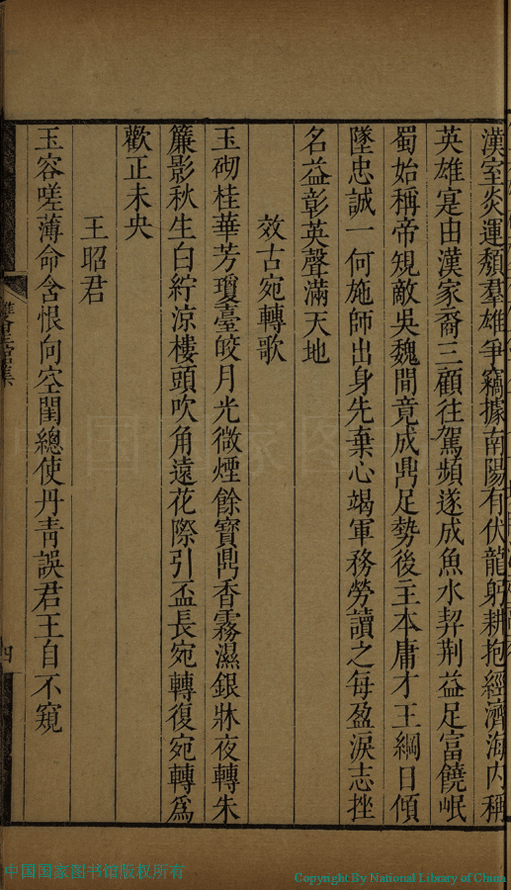 漢室炎運頹羣雄爭竊據南陽有伏龍躬耕抱經濟海内稱
英雄寔由漢家裔三顧往駕頻遂成魚水契荆益足富饒岷
蜀始稱帝䂓敵吳魏間竟成鼎足勢後主本庸才王綱日傾
墜忠誠一何施師出身先棄心竭軍務勞讀之每盈淚志挫
名益彰英聲滿天地
效古宛轉歌
玉砌桂華芳瓊臺皎月光微煙餘寶鼎香霧濕銀牀夜轉朱
簾影秋生白紵涼樓頭吹角遠花際引盃長宛轉復宛轉爲
歡正未央
王昭君
玉容嗟薄命含恨向空閨總使丹青誤君王自不窺
四
中国国家图书馆版权所有
Copyright By National Library of China